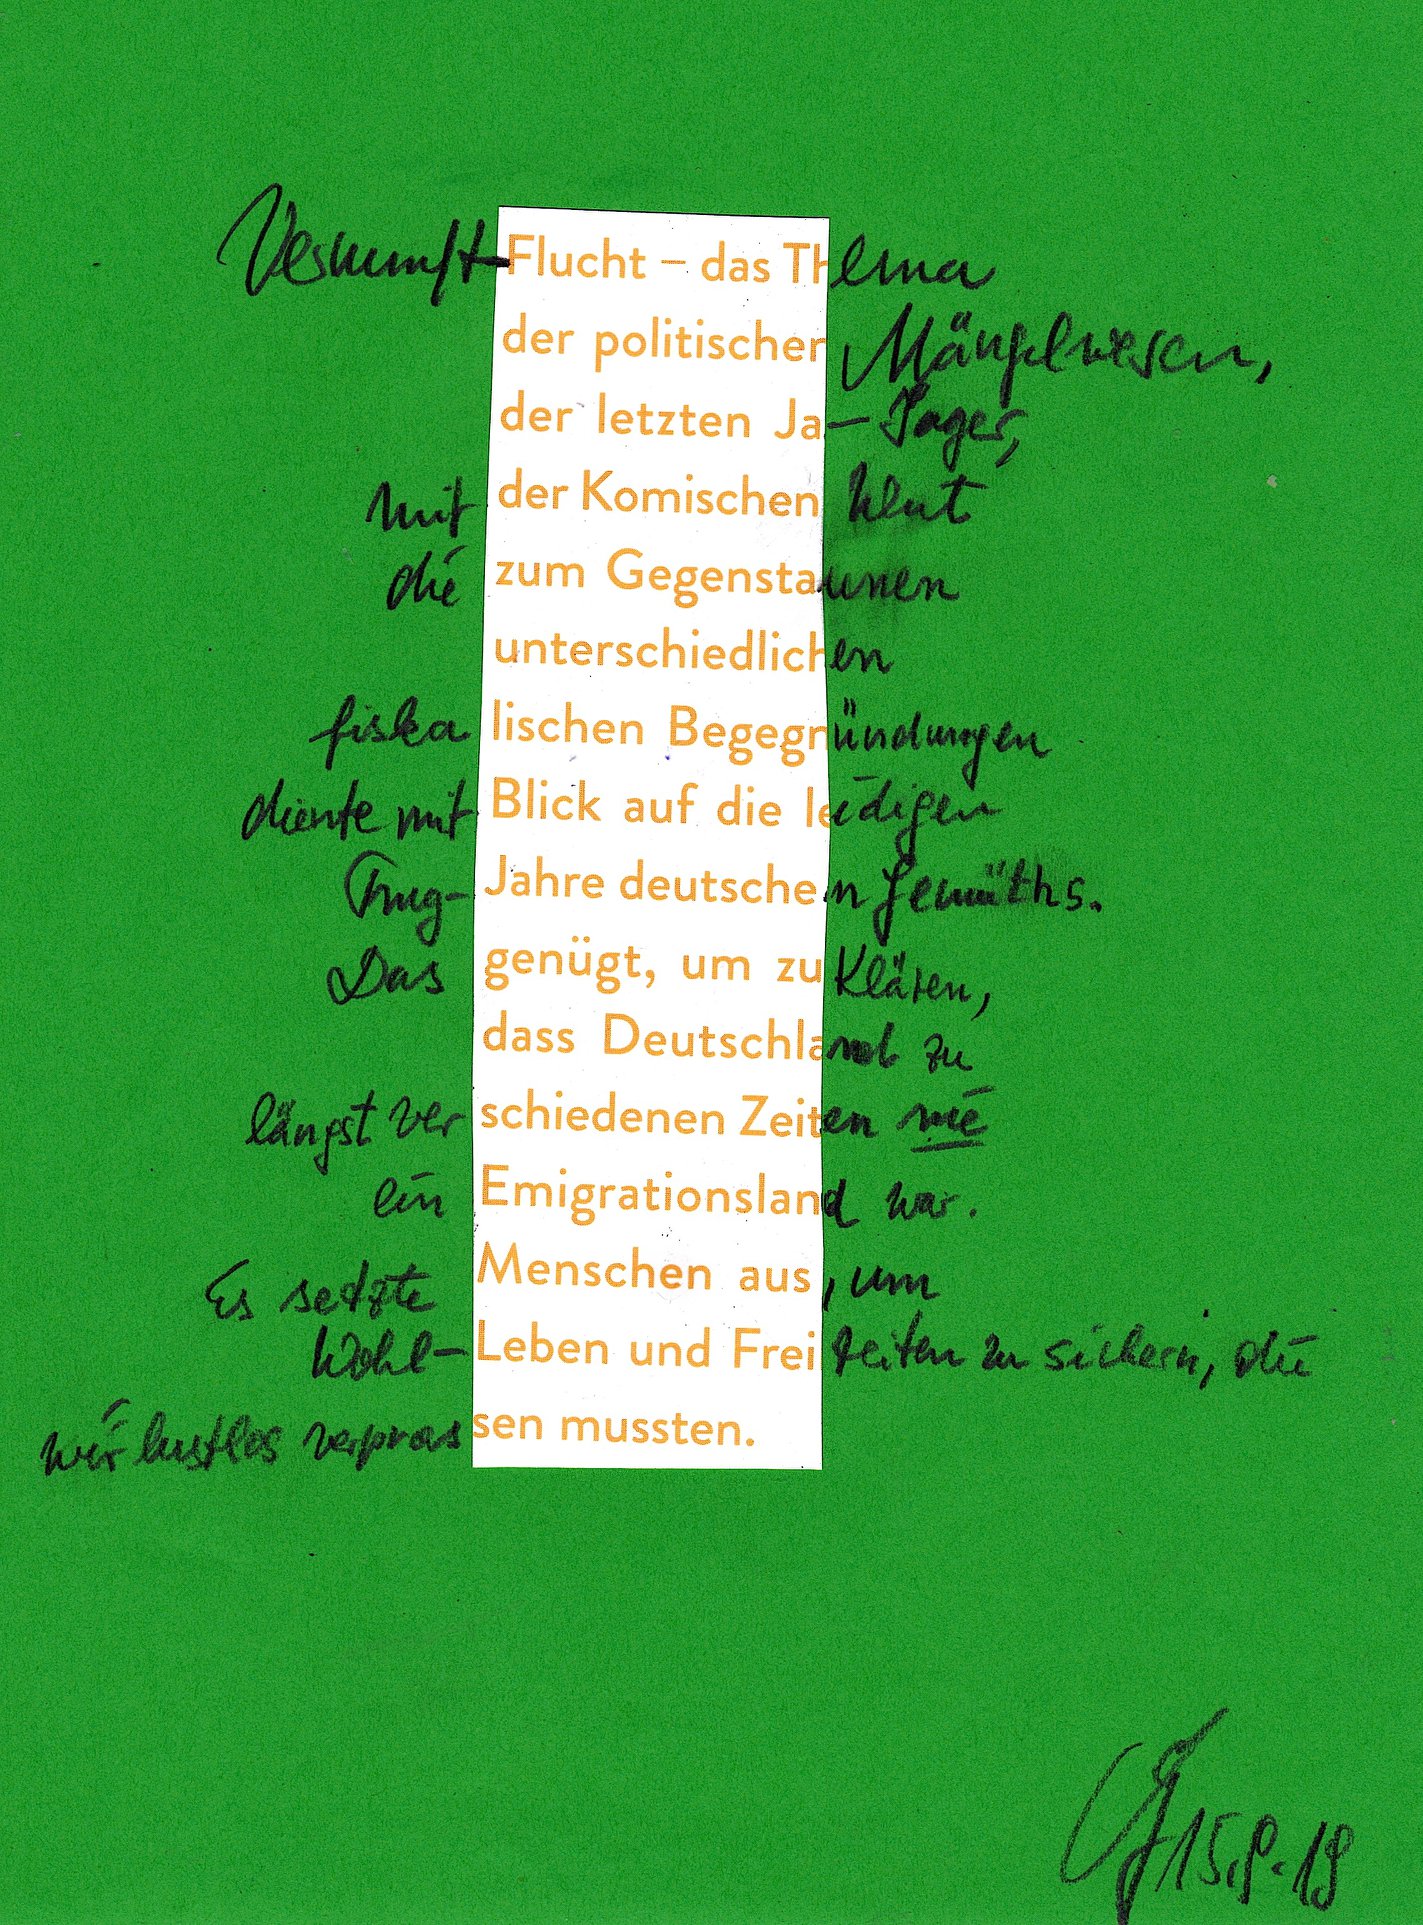 Vernunft-Flucht – das Thema
der politischen Mängelwesen,
der letzten Ja-Sager,
mit der Komischen Wut
die zum Gegenstaunen
unterschiedlichen
fiskalischen Begegründungen
diente mit Blick auf die leidigen
Trug-Jahre deutschen Gemüths.
Das genügt, um zu klären,
dass Deutschland zu
längst verschiedenen Zeiten nie
ein Emigrationsland war.
Es setzte Menschen aus, um
Wohl-Leben und Freizeiten zu sichern, die
wir lustlos verprassen mussten.
15.9.19